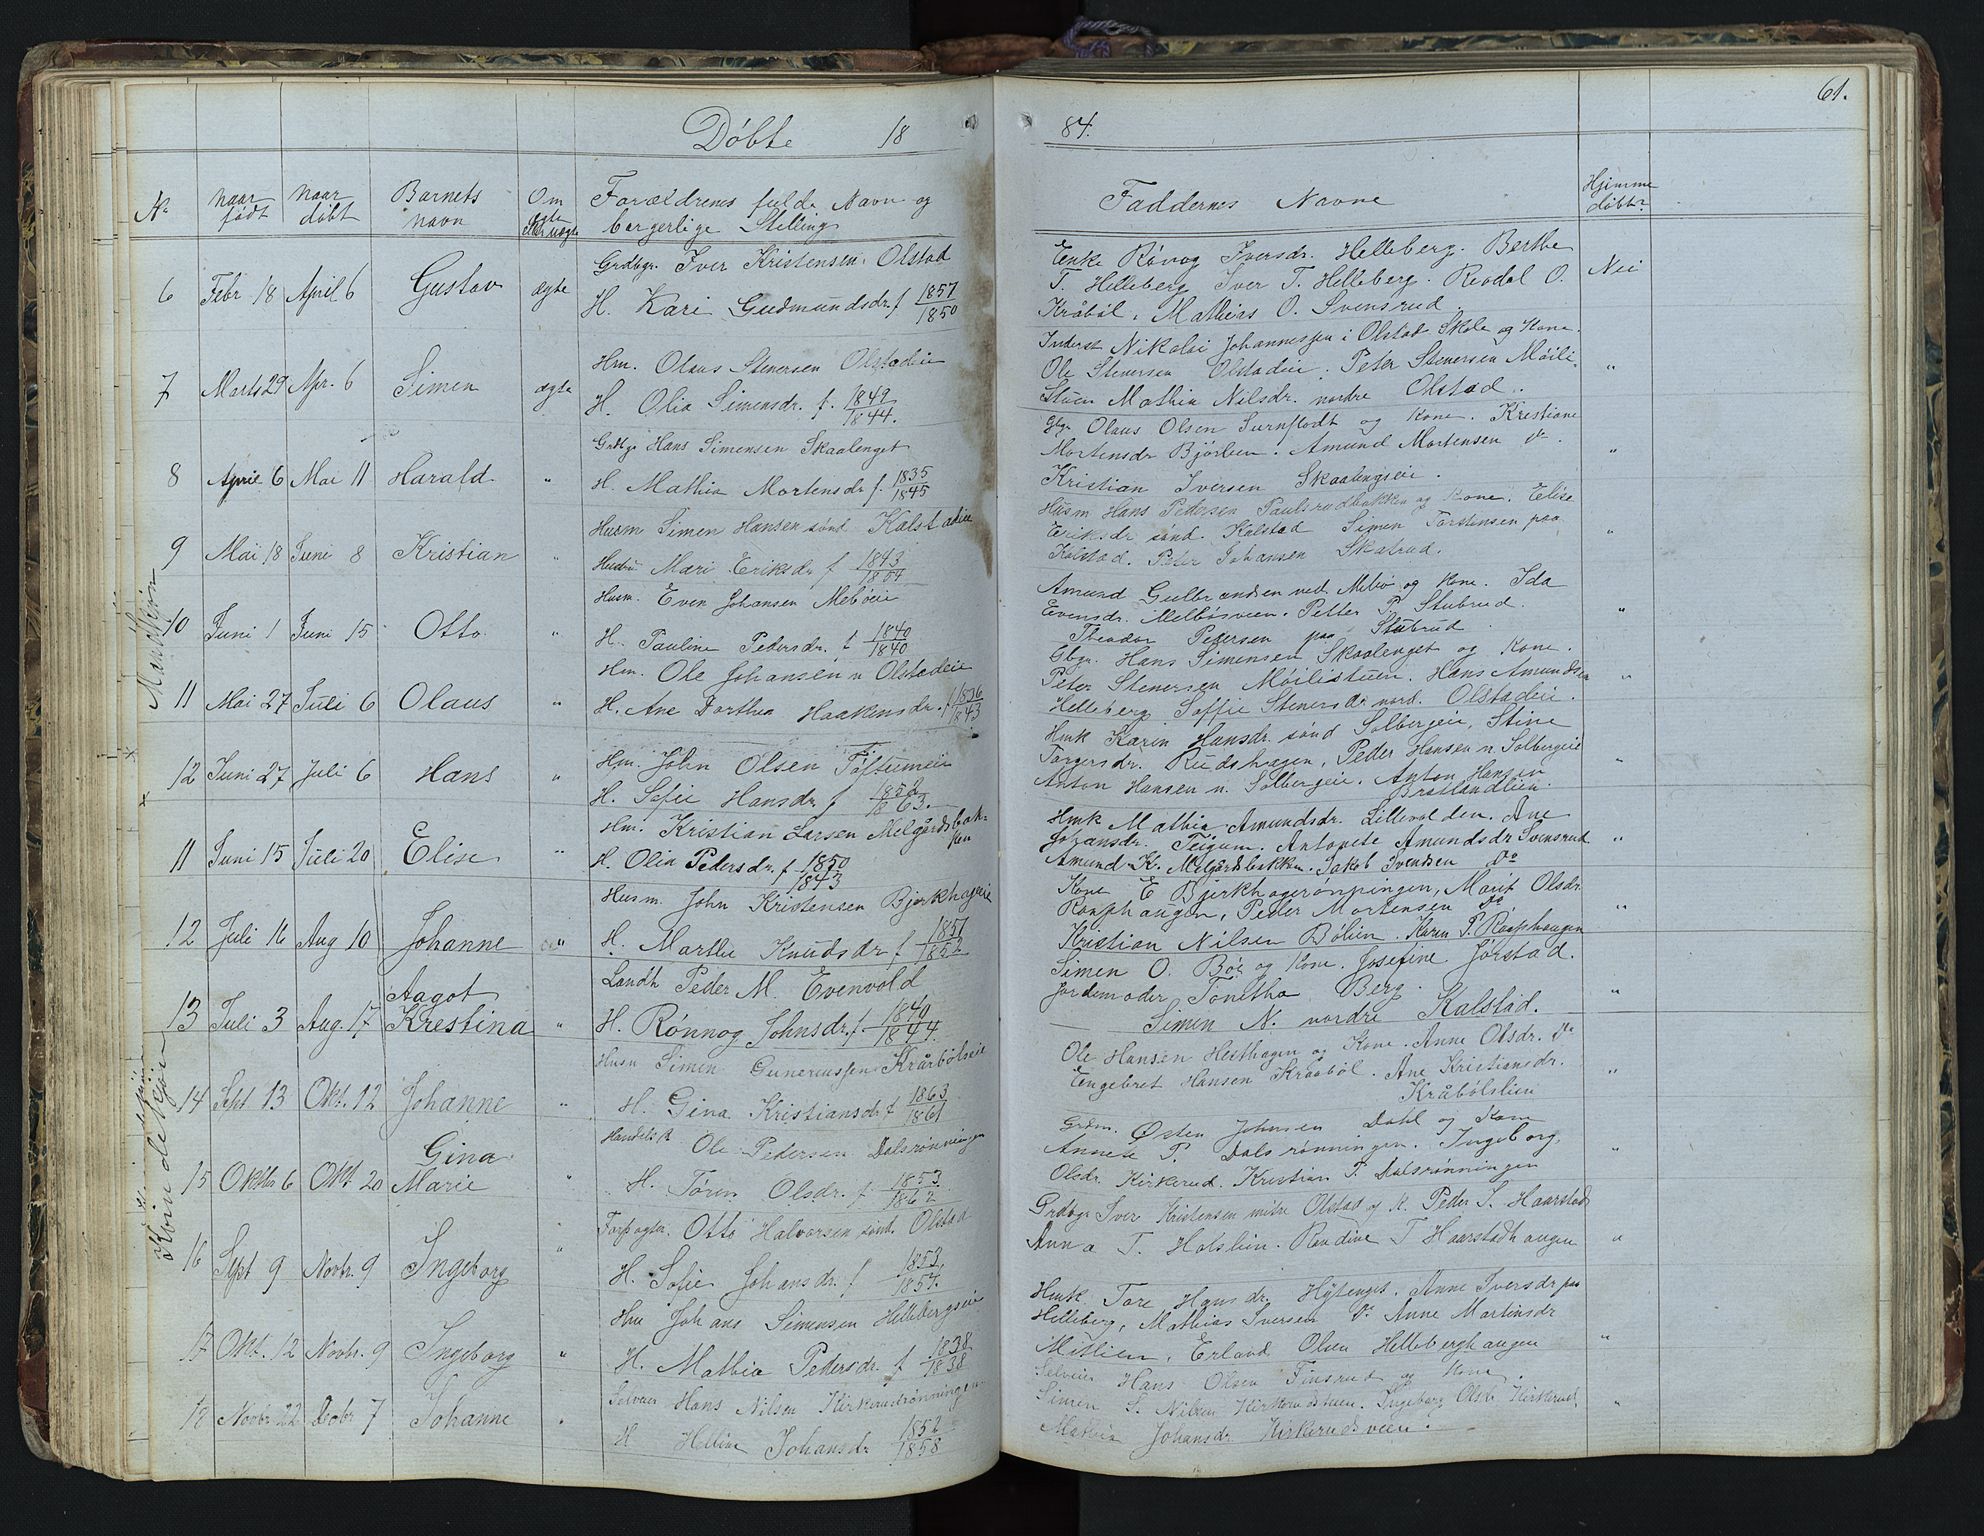 61.
Døbte 18 84.
No naar født naar døbt Barnets navn Om ægte ell. uægte Forældrenes fulde Navn og borgerlige Stilling
Faddernes Navne Hjemme døbt?
Mandkjøn
6 Febr 18 April 6 Gustav ægte Grdbgr. Iver Kristensen Olstad
H. Kari Gudmundsdr. f 1857 1850
Enke Rønnog Iversdr. Helleberg. Berthe
T. Helleberg Iver T. Helleberg. Rendol O. Nei
Kråbøl. Mathias O. Svensrud
7 Marts 29 Apr. 6 Simen ægte Hm. Olaus Stenersen Olstadeie
H. Olia Simensdr. f. 1849 1844.
Inderst Nikolai Johannessen i Olstad Skole og Kone.
Ole Stenersen Olstadeie. Peter Stenersen Moili „
Stuen Mathia Nilsdr. nordre Olstad.
8 April 6 Mai 11 Harald „ Grdbgr Hans Simensen Skaalenget
H. Mathia Mortensdr f. 1835 1845
Gbgr Olaus Olsen Surnflodt og Kone. Kristiane
Mortensdr Bjørlien. Amund Mortensen do „
Kristian Iversen Skaalengseie.
9 Mai 18 Juni 8 Kristian „ Husm Simen Hansen sønd Kalstadeie
Hustru Mari Eriksdr f 1843
Husm Hans Pedersen Paulsrudbakken og Kone. Elise
Eriksdr sønd. Kalstad Simen Torstensen paa „
Kalstad. Peter Johansen Skatrud.
10 Juni 1 Juni 15 Otto „ Husm. Even Johansen Melbøeie
H. Pauline Pedersdr. f 1840 1840
Amund Gulbrandsen ved Melbø og Kone. Ida
Evensdr. Melbøsveen. Petter P. Stubrud. „
Theodor Pedersen paa Stubrud
11 Mai 27 Juli 6 Olaus „ Hm. Ole Johansen n Olstadeie
H. Ane Dorthea Haakensdr. f 1836 1843
Gbgr. Hans Simensen Skaalenget og Kone.
Peter Stenersen Moilistuen. Hans Amundsen „
Helleberg Soffie Stenersdr nord. Olstadeie.
12 Juni 27 Juli 6 Hans „ Hm. John Olsen Toftumeie
H. Sofie Hansdr. f 1852 1863.
Hmk Karin Hansdr. sønd Solbergeie, Stine
Torgersdr. Rudshagen, Peder Hansen n. Solbergeie „
Anton Hansen n. Solbergeie. Anton Hansen
Bratlandlien.
Kvindekjøn
11 Juni 15 Juli 20 Elise „ Hm. Kristian Larsen Melgårdsbakken
H. Olia Pedersdr. f 1850 1843
Hmk Mathia Amundsdr. Lillevolden. Ane
Johansdr. Teigum. Antonete Amundsdr Svensrud „
Amund K. Melgårdsbakken. Jakob Svendsen do
12 Juli 16 Aug 10 Johanne „ Husm. John Kristensen Bjerkhageeie
H. Marthe Knudsdr f 1851 1852
Kone E Bjerkhagerønningen, Marit Olsdr.
Raaphaugen, Peder Mortensen do „
Kristian Nilsen Bølien. Karen P. Raaphaugen
13 Juli 3 Aug. 17 Aagot Krestina „ Landh Peder M. Evenvold
H. Rønnog Johnsdr. f. 1840 1844.
Simen O. Bøe og Kone. Josefine Jørstad.
Jordemoder Tonetha Berg. „
Simen N. nordre Kalstad.
14 Sept 13 Okt. 12 Johanne „ Husm Simen Gunerussen Kråbølseie
H. Gina Kristiansdr f 1863 1861
Ole Hansen Hesthagen og Kone. Anne Olsdr. do
Engebret Hansen Kraabøl. Ane Kristiansdr. „
Kråbølslien
15 Oktbr 6 Okt. 20 Gina Marie „ Handelsk Ole Pedersen Dalsrønningen
H. Tøren Olsdr. f. 1853 1862
Grdm. Østen Johnsen Dahl og Kone
Annete P. Dalsrønningen. Ingeborg „
Olsdr. Kirkerud. Kristian P. Dalsrønningen
16 Sept 9 Novbr. 9 Ingeborg „ Forpagter Otto Halvorsen sønd. Olstad
H. Sofie Johansdr. f 1853. 1857.
Grdbgr Iver Kristensen mitre Olstad og K. Peder S. Haarstad
Anna T. Holslien. Randine T Haarstadhaugen „
17 Okt. 12 Novbr. 9 Ingeborg „ Hm Johans Simensen Hellebergseie
H. Mathia Pedersdr. f 1838 1838
Hmk. Tore Hansdr. Hytenget. Anne Iversdr paa
Helleberg, Mathias Iversen do Anne Martinsdr
Mitlien, Erland Olsen Helleberghaugen „
18 Novbr. 22 Decbr 7 Johanne „ Selveier Hans Nilsen Kirkerudrønningen
H Helene Johansdr 1852 1858
Selveier Hans Olsen Finsrud og Kone.
Simen S. Nilsen Kirkerudstuen. Ingeborg Olsdr Kirkerud „
Mathia Johansdr Kirkerudsveen.